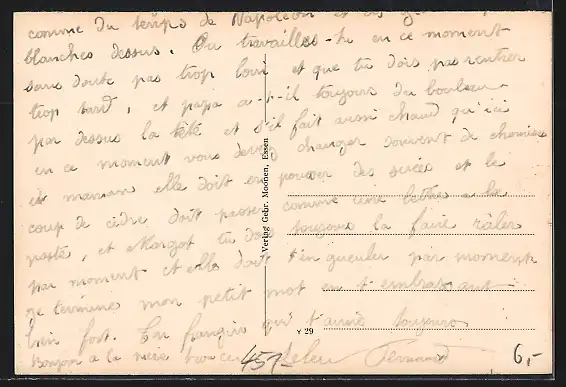 comme du temps de Napoléon et des
blanches dessus. Ou travailles-tu en ce moment
sans doute pas trop loin et que tu dois pas rentrer
trop tard, et papa a-t-il toujours du bouleau
par dessus la tête et s'il fait aussi chaud qu'ici
en ce moment vous devez changer souvent de chemise
et maman elle doit en pousser des suées et le
coup de cidre doit passé comme une lettre a la
poste, et Margot tu dois toujours la faire râler
par moment et elle doit t'in gueuler par moment
je termine mon petit mot en t'embrassant
bien fort. Ton frangin qui t'aime toujours
Bonjour a la mère
Fernand
451-
6,-
Verlag Gebr. Moonen, Essen
Y 29